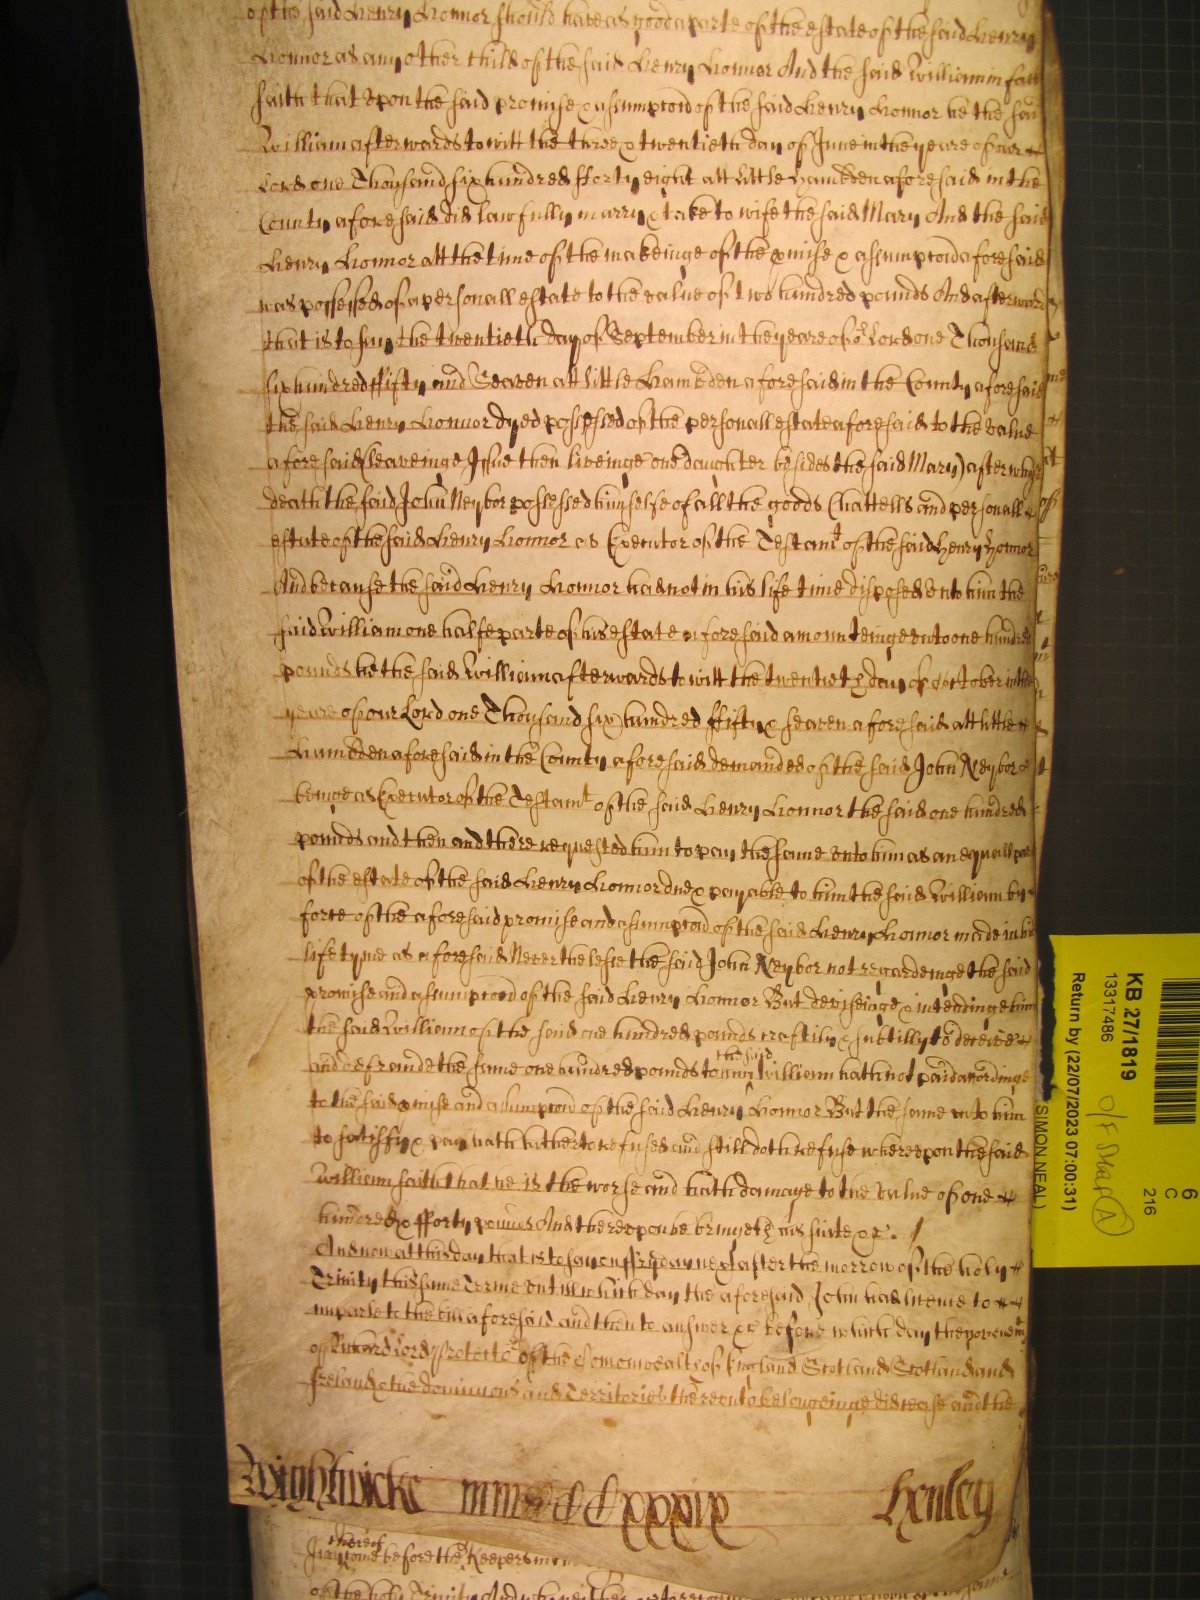 of the said Henry Honnor should have as good a parte of the estate of the said Henry
Honnor as any other child of the said Henry Honnor And the said William in fact
saith that upon the said promise & assumpcon of the said Henry Honnor he the said
William afterwards to witt the three & twentieth day of June in the yeare of our
Lord one Thousand six hundred fforty eight att little Hambden aforesaid in the
County aforesaid did lawfully marry & take to wife the said Mary And the said
Henry Honnor att the time of the makeinge of the pmise & assumpcon aforesaid
was possessed of a personall estate to the value of two hundred pounds And afterwards
that is to say the twentieth day of September in the yeare of or Lord one Thousand
six hundred ffifty and Seaven att little Hambden aforesaid in the County aforesaid
the said Henry Honnor dyed possessed of the personall estate aforesaid to the value
aforesaid (leaveinge Issue then liveinge one daughter besides the said Mary) after whose
death the said John Neybor possessed himselfe of all the goods Chattells and personall
estate of the said Henry Honnor as Executor of the Testamt of the said Henry Honnor
And because the said Henry Honnor had not in his life time disposed unto him the
said William one halfe parte of his estate aforesaid amounteinge unto one hundred
pounds he the said William afterwards to witt the twentieth day of October in the
yeare of our Lord one Thousand six hundred ffifty & seaven aforesaid att little
Hambden aforesaid in the County aforesaid demanded of the said John Neybor
beinge as Executor of the Testamt of the said Henry Honnor the said one hundred
pounds and then and there requested him to pay the same unto him as an equall part
of the estate of the said Henry Honnor due & payable to him the said William by
force of the aforesaid promise and assumpcon of the said Henry Honnor made in his
life tyme as aforesaid Neverthelesse the said John Neybor not regardeinge the said
promise and assumpcon of the said Henry Honnor But deviseinge & intendinge him
the said William of the said one hundred pounds craftily & subtilly to deceive
and defraude the same one hundred pounds to him the said William hath not paid accordinge
to the said pmise and assumpcon of the said Henry Honnor But the same unto him
to satisfy & pay hath hitherto refused and still doth refuse whereupon the said
William saith that he is the worse and hath damage to the value of one
hundred & fforty pounds And thereupon he bringeth his suite &c.
And now att this day that is to say on ffryday next after the morrow of the holy
Trinity this same Terme untill which day the aforesaid John had licence to
imparle to the bill aforesaid and then to answer &c before which day the
of Richard Lord Protector of the Comonwealth of England Scotland Scotland and
Ireland & the dominions and Territories thereunto belongeinge did cease and the
Wightwicke mmdccxxxix Henley
thereof
before the Keepers
of the holy Trinity And
KB 27/1819
13317486
O/F Staff (A)
Return by (22/07/2023 07:00:31)
SIMON NEAL)
6
C
216